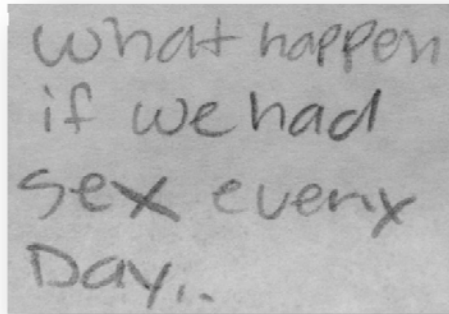 what happen
if we had
sex every
Day...